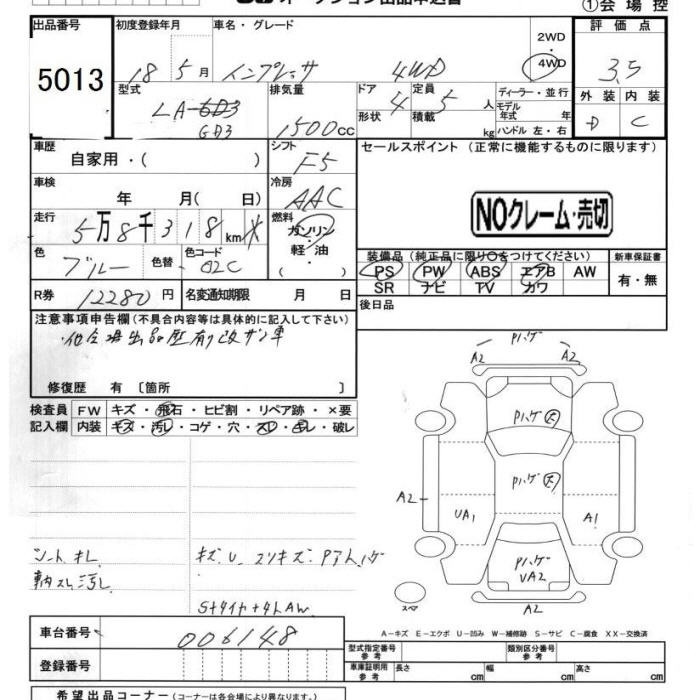 オークション出品申込書 ①会場控
出品番号 初度登録年月 車名・グレード 2WD 評価点
5013 18 5月 インプレッサ 4WD 4WD 3.5
型式 排気量 ドア 定員 ディーラー・並行 外装 内装
LA-GD3 4 5人 モデル年式 年 D C
GD3 1500cc 形状 積載 kg ハンドル 左・右
車歴 シフト セールスポイント (正常に機能するものに限ります)
自家用・( ) F5
車検 冷房
年 月( 日) AAC NOクレーム・売切
走行 燃料
5万8千318km ガソリン
色 色替 色コード 軽・油 装備品 (純正品に限り○をつけてください) 新車保証書
ブルー 02C ( ) PS PW ABS エアB AW 有・無
SR ナビ TV カワ
R券 12280円 名変通知期限 月 日 後日品
注意事項申告欄 (不具合内容等は具体的に記入して下さい)
・他会場出品歴有
修復歴 有 〔箇所 〕
検査員 FW キズ・飛石・ヒビ割・リペア跡・×要
記入欄 内装 キズ・汚レ・コゲ・穴・スレ・キレ・破レ
Pハゲ
A2 A2
Pハゲ 大
Pハゲ 大
A2 UA1 A1
シートキレ キズ U スリキズ Pハゲ
Pハゲ
UA2
スペア A2
車台番号 006148
A-キズ E-エクボ U-凹み W-補修跡 S-サビ C-腐食 XX-交換済
登録番号 型式指定番号 参考 類別区分番号 参考
車庫証明用 参考 長さ cm 幅 cm 高さ cm
希望出品コーナー (コーナーは各会場により異なります。)